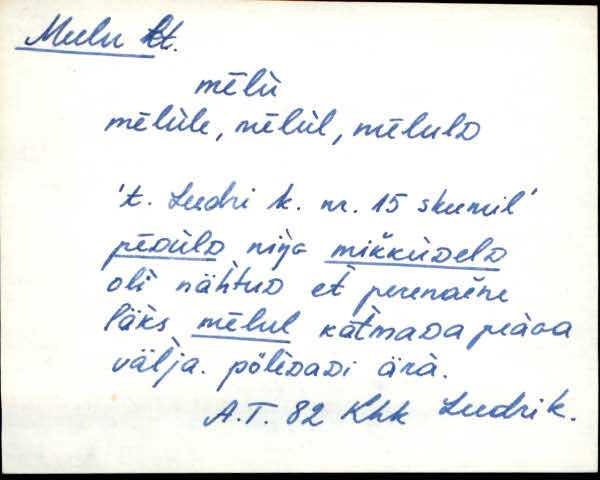 Meelu kt.
mēlü
mēlüle, mēlül, mēlulᴅ
't. Leedri k. nr. 15 skeemil'
pēᴅülᴅ niŋɢ mikküᴅelᴅ
oli nähtuᴅ et perenaene
läks mēlul katmaᴅa peaɢa
välja. põleᴅaᴅi ärä.
A.T. 82 Khk Leedri k.